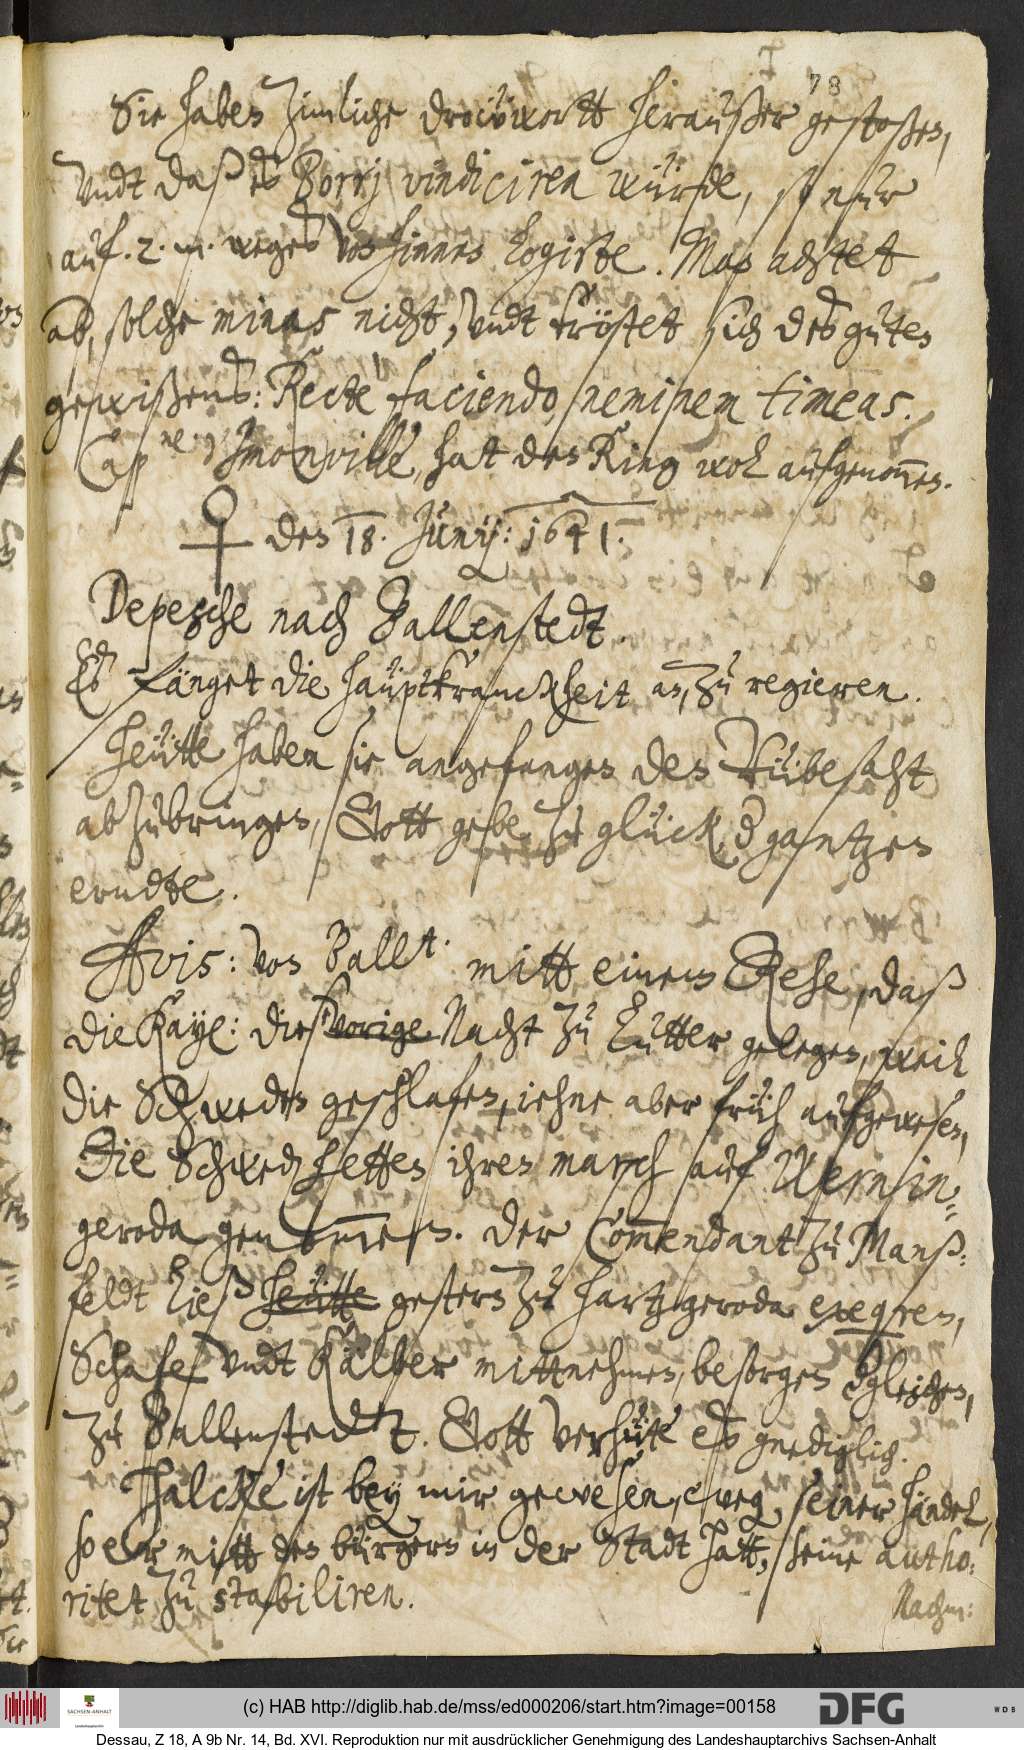 78
Sie haben zimliche drowwortt heraußer gestoßen,
vndt daß es Borry vindiciren würde, so nur
auf. 2. m. weges von hinnen logirte. Man achtet
ab, solche minas nicht, vndt tröstet sich des guten
gewißens: Recte faciendo, neminem timeas.
Cap.ne Simonville, hat den Ring wol aufgenom̅en.
♀ den 18. Junij: 1641.
Depesche nach Ballenstedt.
Es fänget die hauptkranckheit an, zu regieren.
Heütte haben sie angefangen den Rübesaht
abzubringen, Gott gebe zu glück, d gantzen
erndte.
Avis: von Ballt. mitt einem Rehe, daß
die Kayl: diese vorige Nacht zu Lutter gelegen, weil
die Schweden geschlafen, iehne aber früh aufgewesen,
Die Schwed: hetten ihren march auf Wernin=
geroda genom̅en. Der Com̅endant zu Manß=
feldt ließ heütte gestern zu Hartzgeroda exeq̅ren,
Schafe vndt Kälber mittnehmen, besorgen dgleichen,
zu Ballenstedt. Gott verhüte es gnediglich.
Thalcke ist bey mir gewesen, weg seiner händel,
so er mitt den bürgern in der Stadt hatt, seine autho=
ritet zu stabiliren.
Nachm:
(c) HAB http://diglib.hab.de/mss/ed000206/start.htm?image=00158
SACHSEN-ANHALT
DFG
WDB
Dessau, Z 18, A 9b Nr. 14, Bd. XVI. Reproduktion nur mit ausdrücklicher Genehmigung des Landeshauptarchivs Sachsen-Anhalt